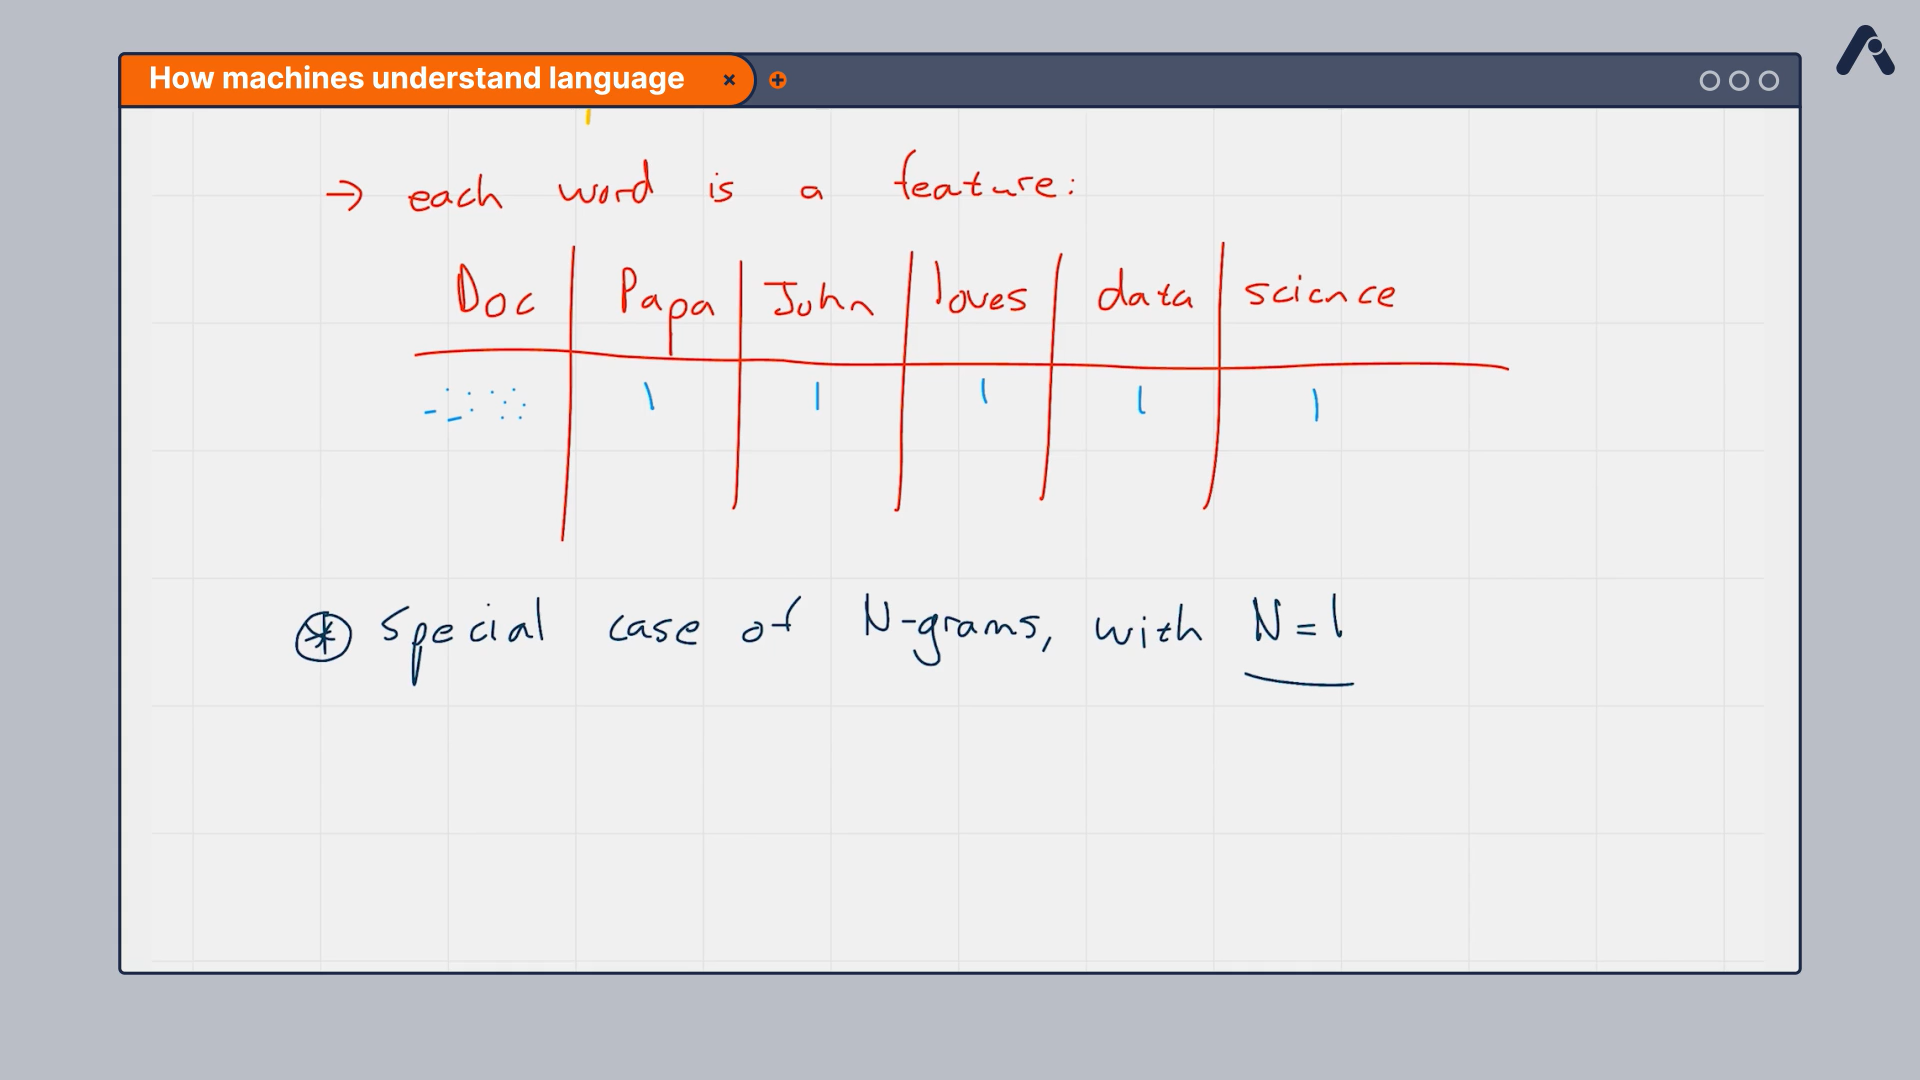 How machines understand language
→ each word is a feature:
Doc Papa John loves data science
1 1 1 1 1
* Special case of N-grams, with N=1